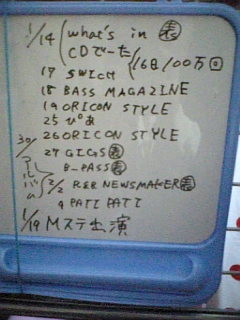 1/14 what's in 表
CDでーた 16日100万回
17 SWICH
18 BASS MAGAZINE
19 ORICON STYLE
25 ぴあ
26 ORICON STYLE
30/ 27 GIGS表
B-PASS表
2/2 R&R NEWSMAKER表
9 PATi PATi
1/19 Mステ出演